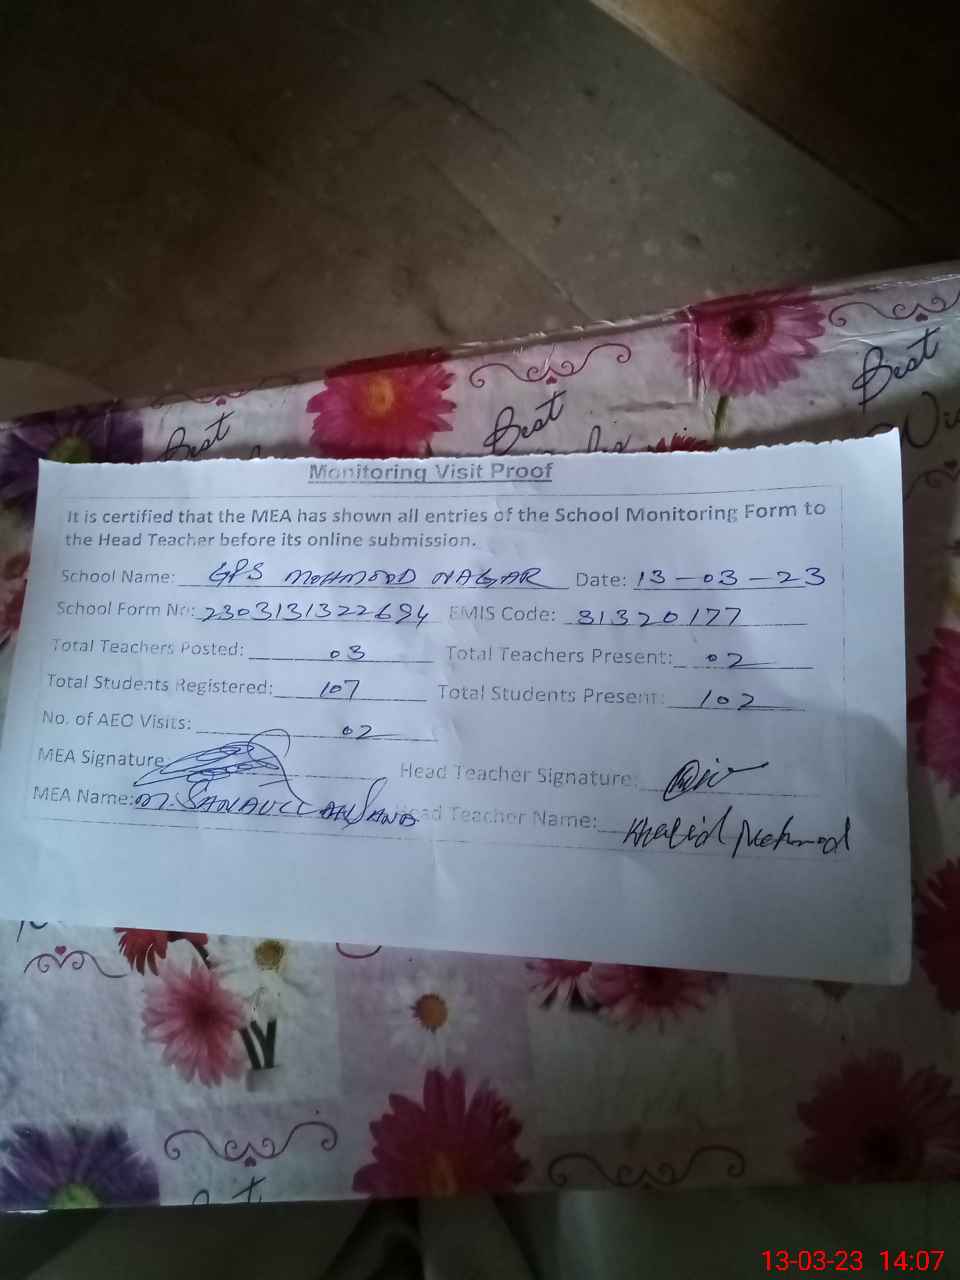 Best
Best
Best
Monitoring Visit Proof
It is certified that the MEA has shown all entries of the School Monitoring Form to
the Head Teacher before its online submission.
School Name: GPS MOHMOOD NAGAR Date: 13-03-23
School Form No: 2303131322694 EMIS Code: 31320177
Total Teachers Posted: 03 Total Teachers Present: 02
Total Students Registered: 107 Total Students Present: 102
No. of AEO Visits: 02
MEA Signature: Head Teacher Signature:
MEA Name: M. SANAULLAH Head Teacher Name: Khalid Mehmood
13-03-23 14:07